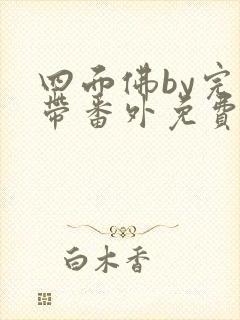 四而佛by完
带番外免費
白木香